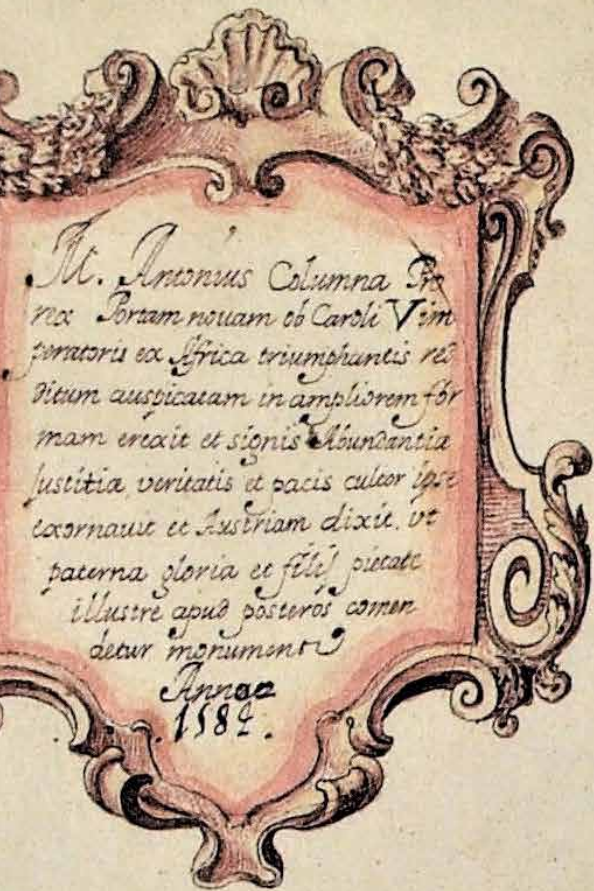 M. Antonius Columna Pro
rex Portam nouam ob Caroli V im
peratoris ex Africa triumphantis re
ditum auspicatam in ampliorem for
mam erexit et signis Abundantiæ
Justitiæ veritatis et pacis cultor ipse
exornauit et Austriam dixit. vt
paterna gloria et filij pietate
illustre apud posteros comen
detur monument
Anno
1584.